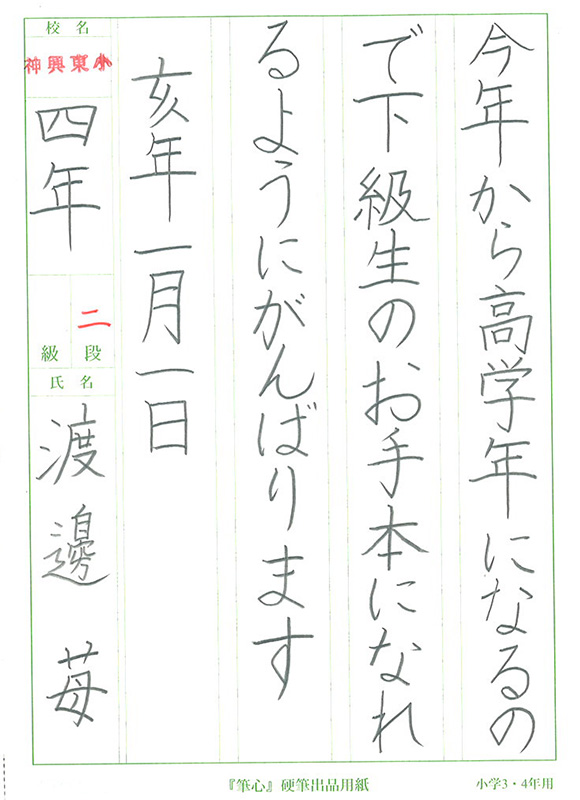 今年から高学年になるの
で下級生のお手本になれ
るようにがんばります
亥年一月一日
校名
神興東小
四年
二
段
級
氏名
渡邊苺
『筆心』硬筆出品用紙
小学3・4年用